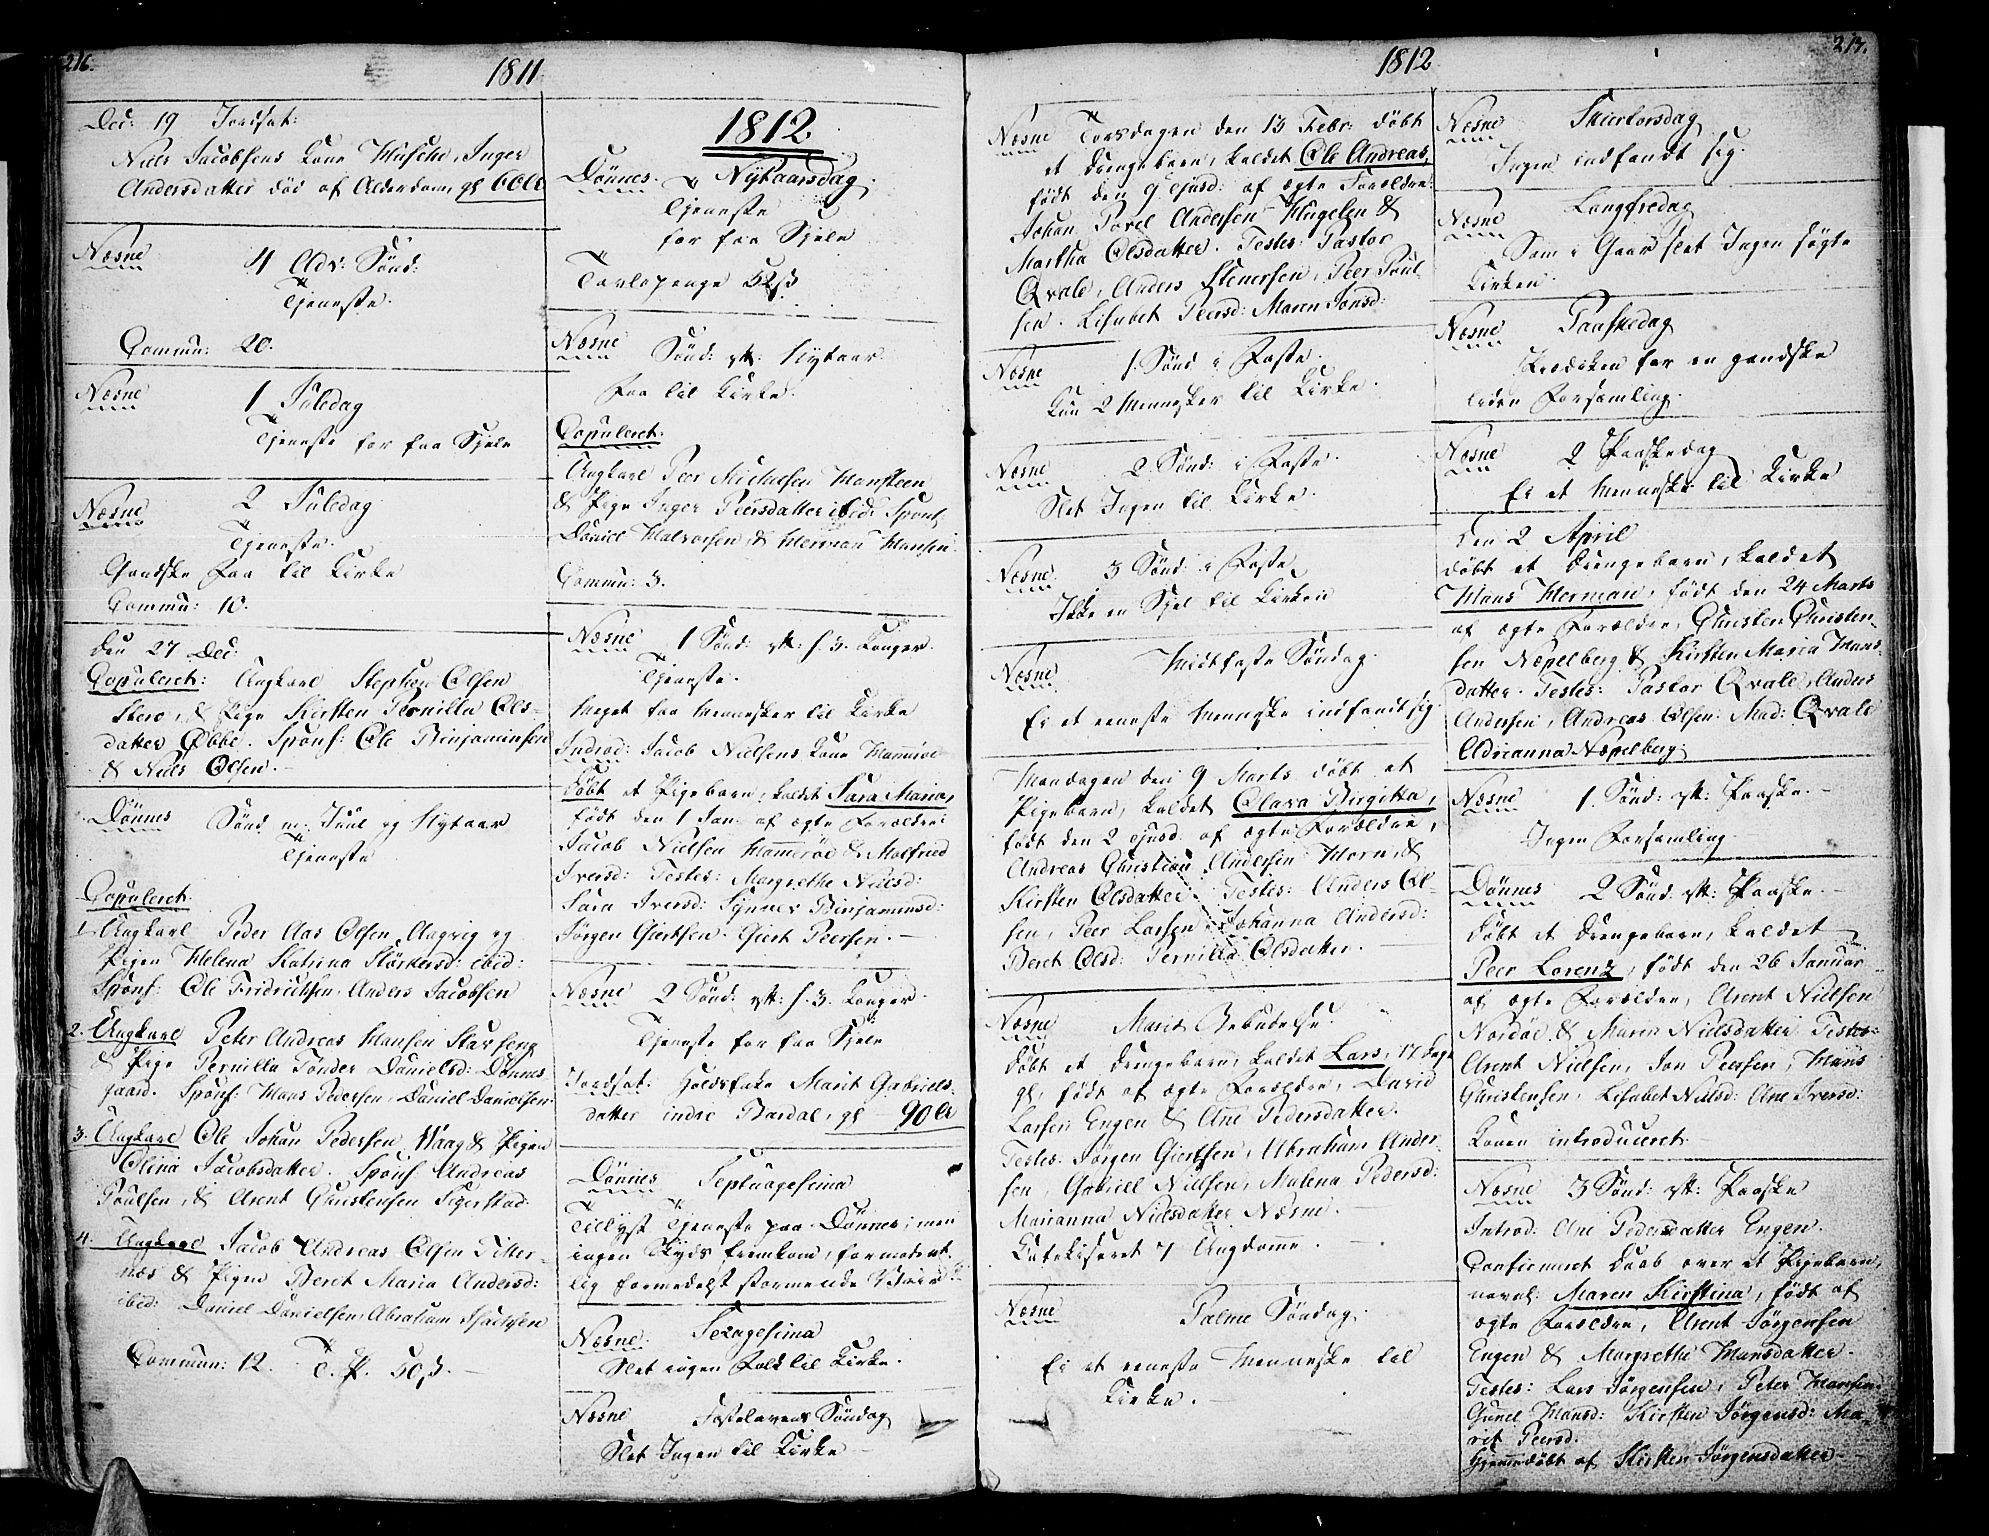 216.
1811
Dec: 19 Jordsat:
Niels Jacobsens Kone Husche, Inger
Andersdatter død af Alderdom gl 60 Ar
Næsne
4 Adv: Sønd:
Tjeneste.
Commun: 20.
Næsne
1 Juledag
Tjeneste for faa Sjele
Næsne
2 Juledag
Tjeneste.
Gandske Faa til Kirke
Commun: 10.
den 27 Dec:
Copuleret: Ungkarl Stephen Olsen
& Pige Kirsten Pernilla Ols-
datter Øbbe. Sponf: Ole Binjaminsen
& Niels Olsen.
Dønnes
Sønd. m: Juul og Nytaar
Tjeneste
Copuleret.
1. Ungkarl Peder Aas Olsen Aagvig og
Pigen Helena Katrina Størkersd: ibid:
Sponf: Ole Fridrichsen, Anders Jacobsen
2. Ungkarl Peter Andreas Hansen Skarseng
& Pige Pernilla Tønder Danielsd: Dønnes
gaard. Sponf: Hans Pedersen, Daniel Danielsen
3. Ungkarl Ole Johan Pedersen Waag & Pigen
Olina Jacobsdatter. Sponf Andreas
Poulsen, & Arent Christensen Sigerstad
4. Ungkarl Jacob Andreas Olsen Titter-
næs & Pigen Beret Maria Andersd:
ibid: Daniel Danielsen, Abraham Isachsen
Commun: 12. T. P. 50 ß.
1812
Dønnes.
Nytaarsdag
Tjeneste
for faa Sjele
Tavlepenge 52 ß
Næsne
Sønd: eft: Nytaar
Faa til Kirke.
Copuleret:
Ungkarl Peer Michelsen Hansteen
& Pige Inger Peersdatter ibid: Sponf
Daniel Halvorsen & Herman Hansen
Commun: 3.
Næsne
1 Sønd: eft: h. 3. Konger.
Tjeneste.
Meget faa Mennesker til Kirke
Introd: Jacob Nielsens Kone Hammerøe
Døbt et Pigebarn, kaldet Sara Maria,
født den 1 Jan: af ægte Forældre
Jacob Nielsen Hammerøe & Malfried
Iversd: Testes: Margrethe Nielsd:
Sara Iversd: Synnev Binjaminsd:
Jørgen Giertsen. Giert Peersen.
Næsne
2 Sønd: eft: h. 3. Konger.
Tjeneste for faa Sjele
Jordsat: Huldsfake Marit Gabriels-
datter indre Bardal, gl 90 Ar
Dønnes
Septuagesima
Tillyst Tjeneste paa Dønnes; men
ingen Skyds fremkom, formodent-
lig formedelst stormende Veir
Næsne.
Sexagesima
Slet ingen Folk til Kirke.
Næsne
Fastelavens Søndag
Slet Ingen til Kirke
217.
1812
Næsne
Torsdagen den 13 Febr: døbt
et Drengebarn, kaldet Ole Andreas,
født den 9 ejusd: af ægte Forældre:
Johan Povel Andersen Hugelen &
Martha Olsdatter. Testes: Pastor
Qvale, Anders Stenersen, Peer Poul-
sen. Lisabet Peersd: Maren Jonsd:
Næsne
1. Sønd i Faste.
Kun 2 Mennesker til Kirke.
Næsne
2. Sønd: i Faste.
Slet Ingen til Kirke.
Næsne.
3 Sønd: i Faste
Ikke en Sjel til Kirken
Næsne
Midtfaste Søndag.
Ei et eeneste Menneske indfandt sig.
Mandagen den 9 Marts døbt et
Pigebarn, kaldet Olava Birgitta,
født den 2 ejusd. af ægte Forældre,
Andreas Christian Andersen Horn, &
Kirsten Olsdatter. Testes: Anders Ol-
sen, Peer Larsen, Johanna Andersd:
Beret Olsd: Pernilla Olsdatter.
Næsne
Mariæ Bebudelse.
døbt et Drengebarn, kaldet Lars, 17 Dage
gl, født af ægte Forældre, David
Larsen Engen & Ane Pedersdatter.
Testes: Jørgen Giertsen, Abraham Ander
sen, Gabriel Nielsen, Malena Pedersd:
Marianna Nielsdatter Næsne.
Katekiseret 7 Ungdomme.
Næsne
Palme Søndag.
Ei et eeneste Menneske til
Kirke.
Næsne
Skiertorsdag
Ingen indfandt sig.
Næsne
Langfredag
Som i Gaar slet Ingen søgte
Kirken
Næsne
Paaskedag
Prædiken for en gandske
liden Forsamling.
Næsne
2 Paaskedag
Ei et Menneske til Kirke
den 2 April
døbt et Drengebarn, kaldet
Hans Herman, født den 24 Marts
af ægte Forældre, Christen Christen-
sen Næpelberg & Kirsten Maria Hans
datter. Testes: Pastor Qvale, Anders
Andersen, Andreas Olsen: Mad: Qvale
Adrianna Næpelberg.
Næsne
1. Sønd: eft: Paaske.
Ingen Forsamling
Dønnes
2 Sønd: eft: Paaske.
Døbt et Drengebarn, kaldet
Peer Lorenz, født den 26 Januar
af ægte Forældre, Arent Nielsen
Nordøe & Maren Nielsdatter Testes
Arent Nielsen, Jon Peersen, Hans
Christensen, Lisabet Nielsd: Ane Iversd:
Konen introduceret.
Næsne
3 Sønd: eft: Paaske
Introd. Ane Pedersdatter Engen.
Confirmeret Daab over et Pigebarn,
navnl: Maren Kirstina, født af
ægte Forældre, Arent Jørgensen
Engen & Margretha Hansdatter.
Testes: Lars Jørgensen, Peter Hansen
Gunel Hansd: Kirsten Jørgensd: Ma-
rit Peersd.
Hjemmedøbt af Kirsten Jørgensdatter